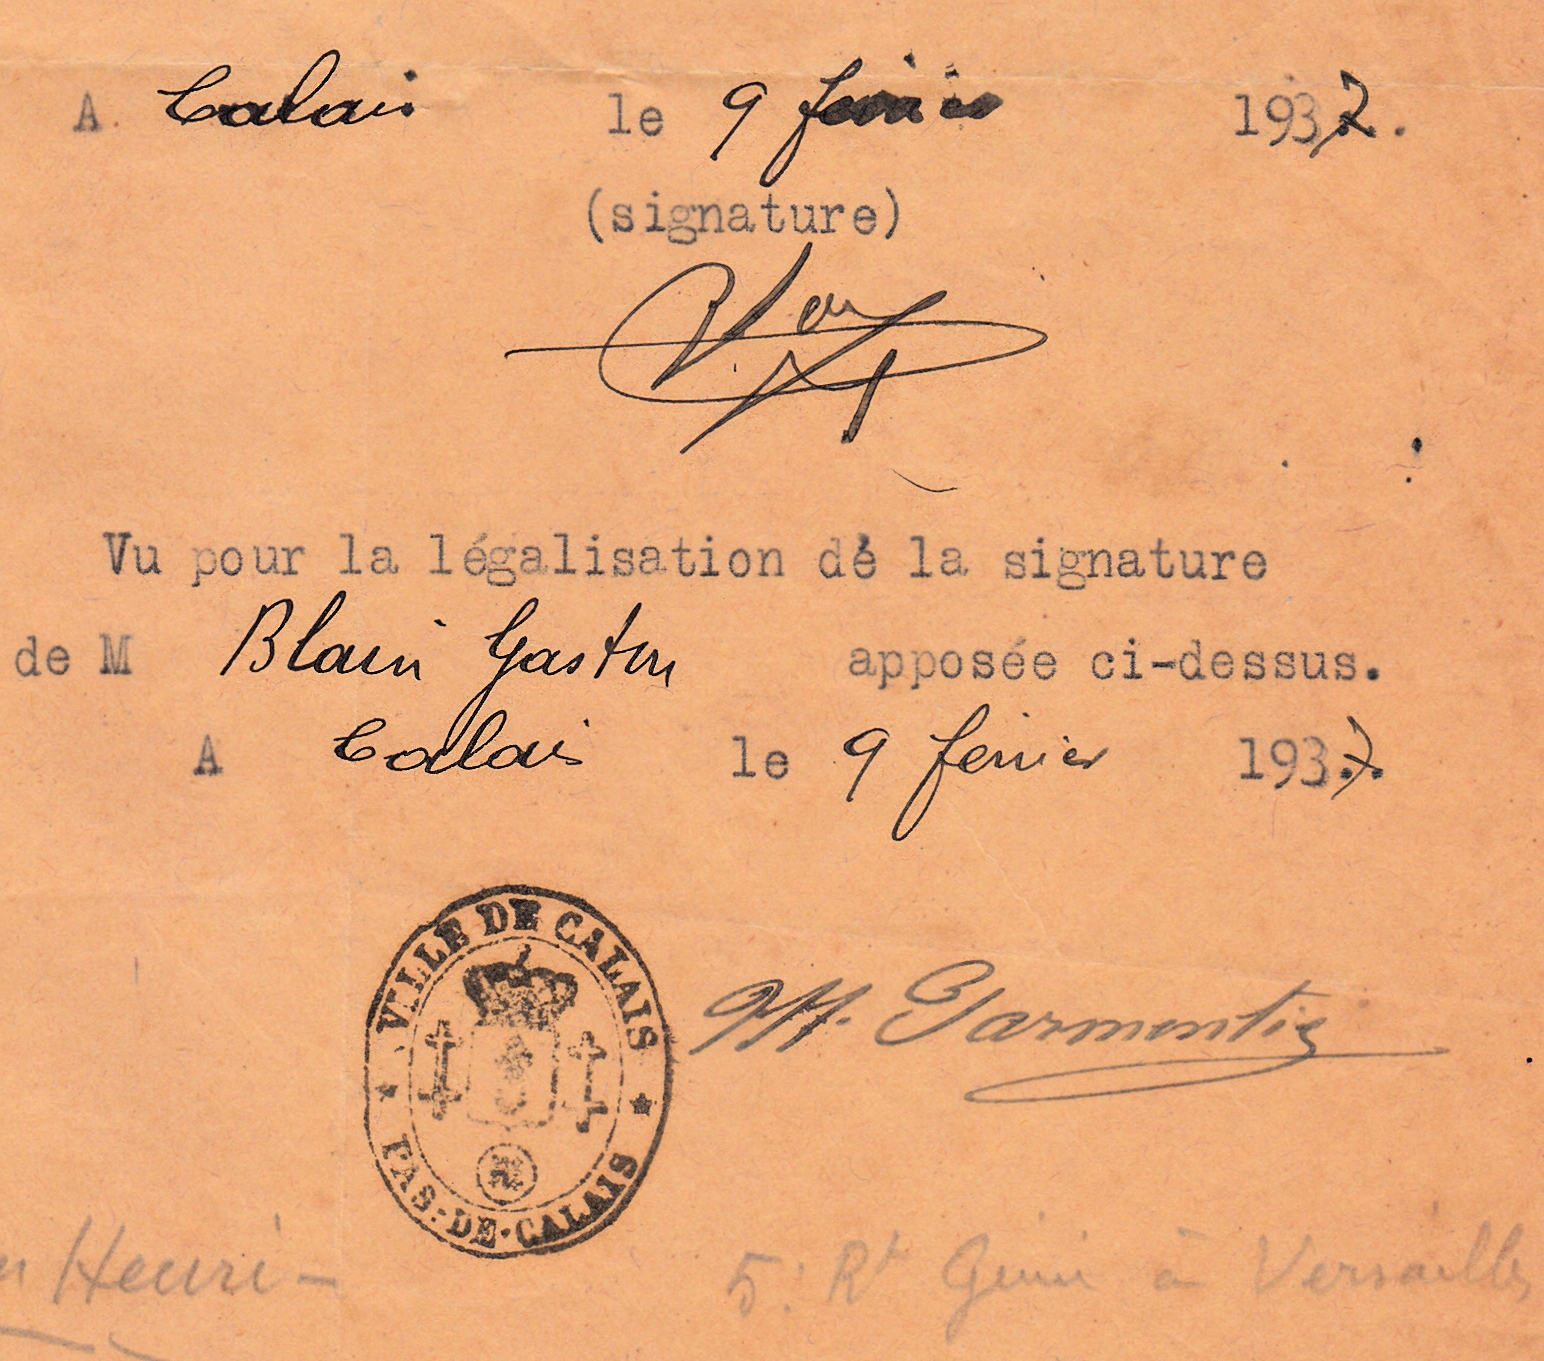 A Calais le 9 fevrier 1937.
(signature)
Vu pour la légalisation de la signature
de M Blain Gaston apposée ci-dessus.
A Calais le 9 fevrier 1937.
VILLE DE CALAIS
PAS-DE-CALAIS
Henri - 5: Rt Génie à Versailles